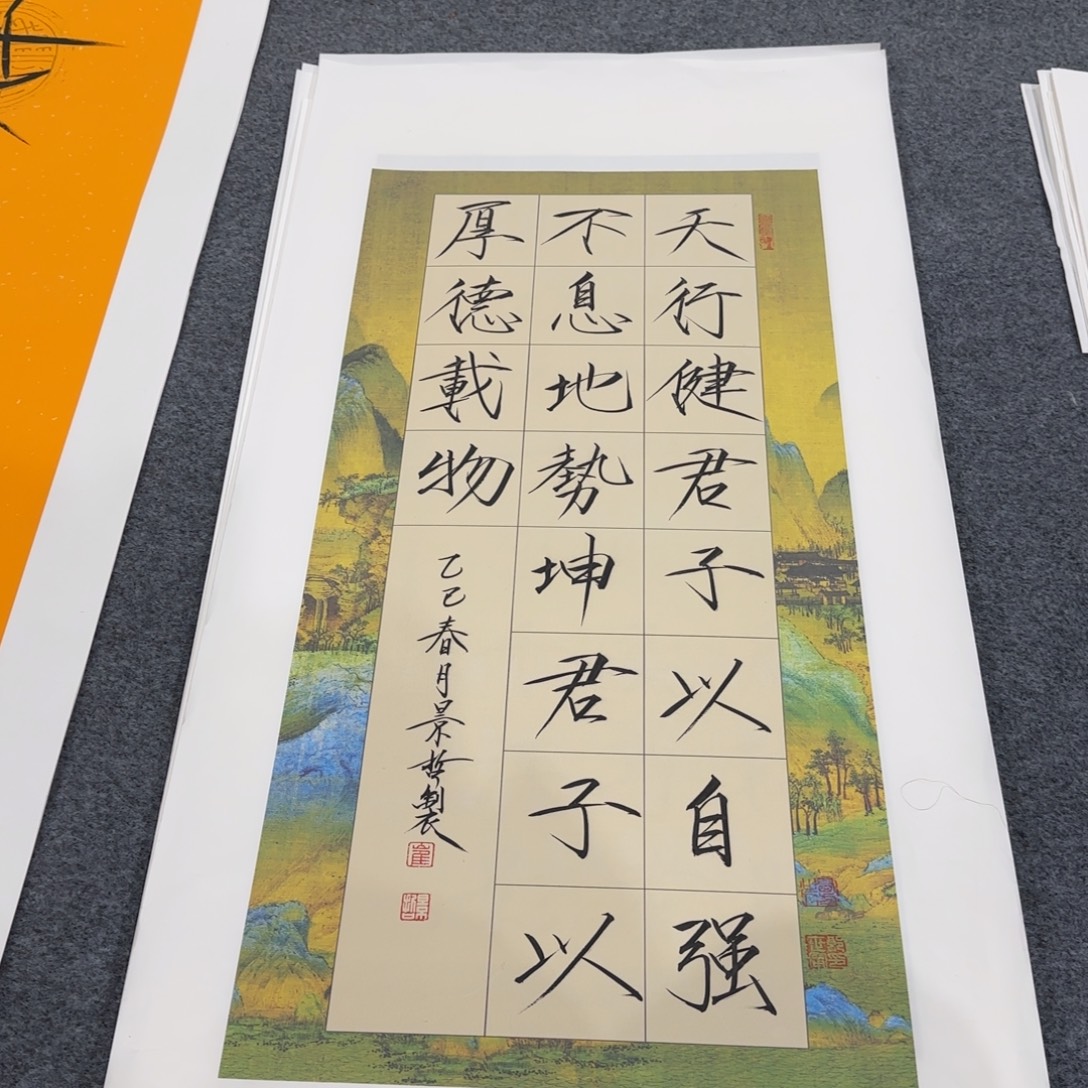 天行健君子以自强
不息地勢坤君子以
厚德載物
乙己春月景哲製